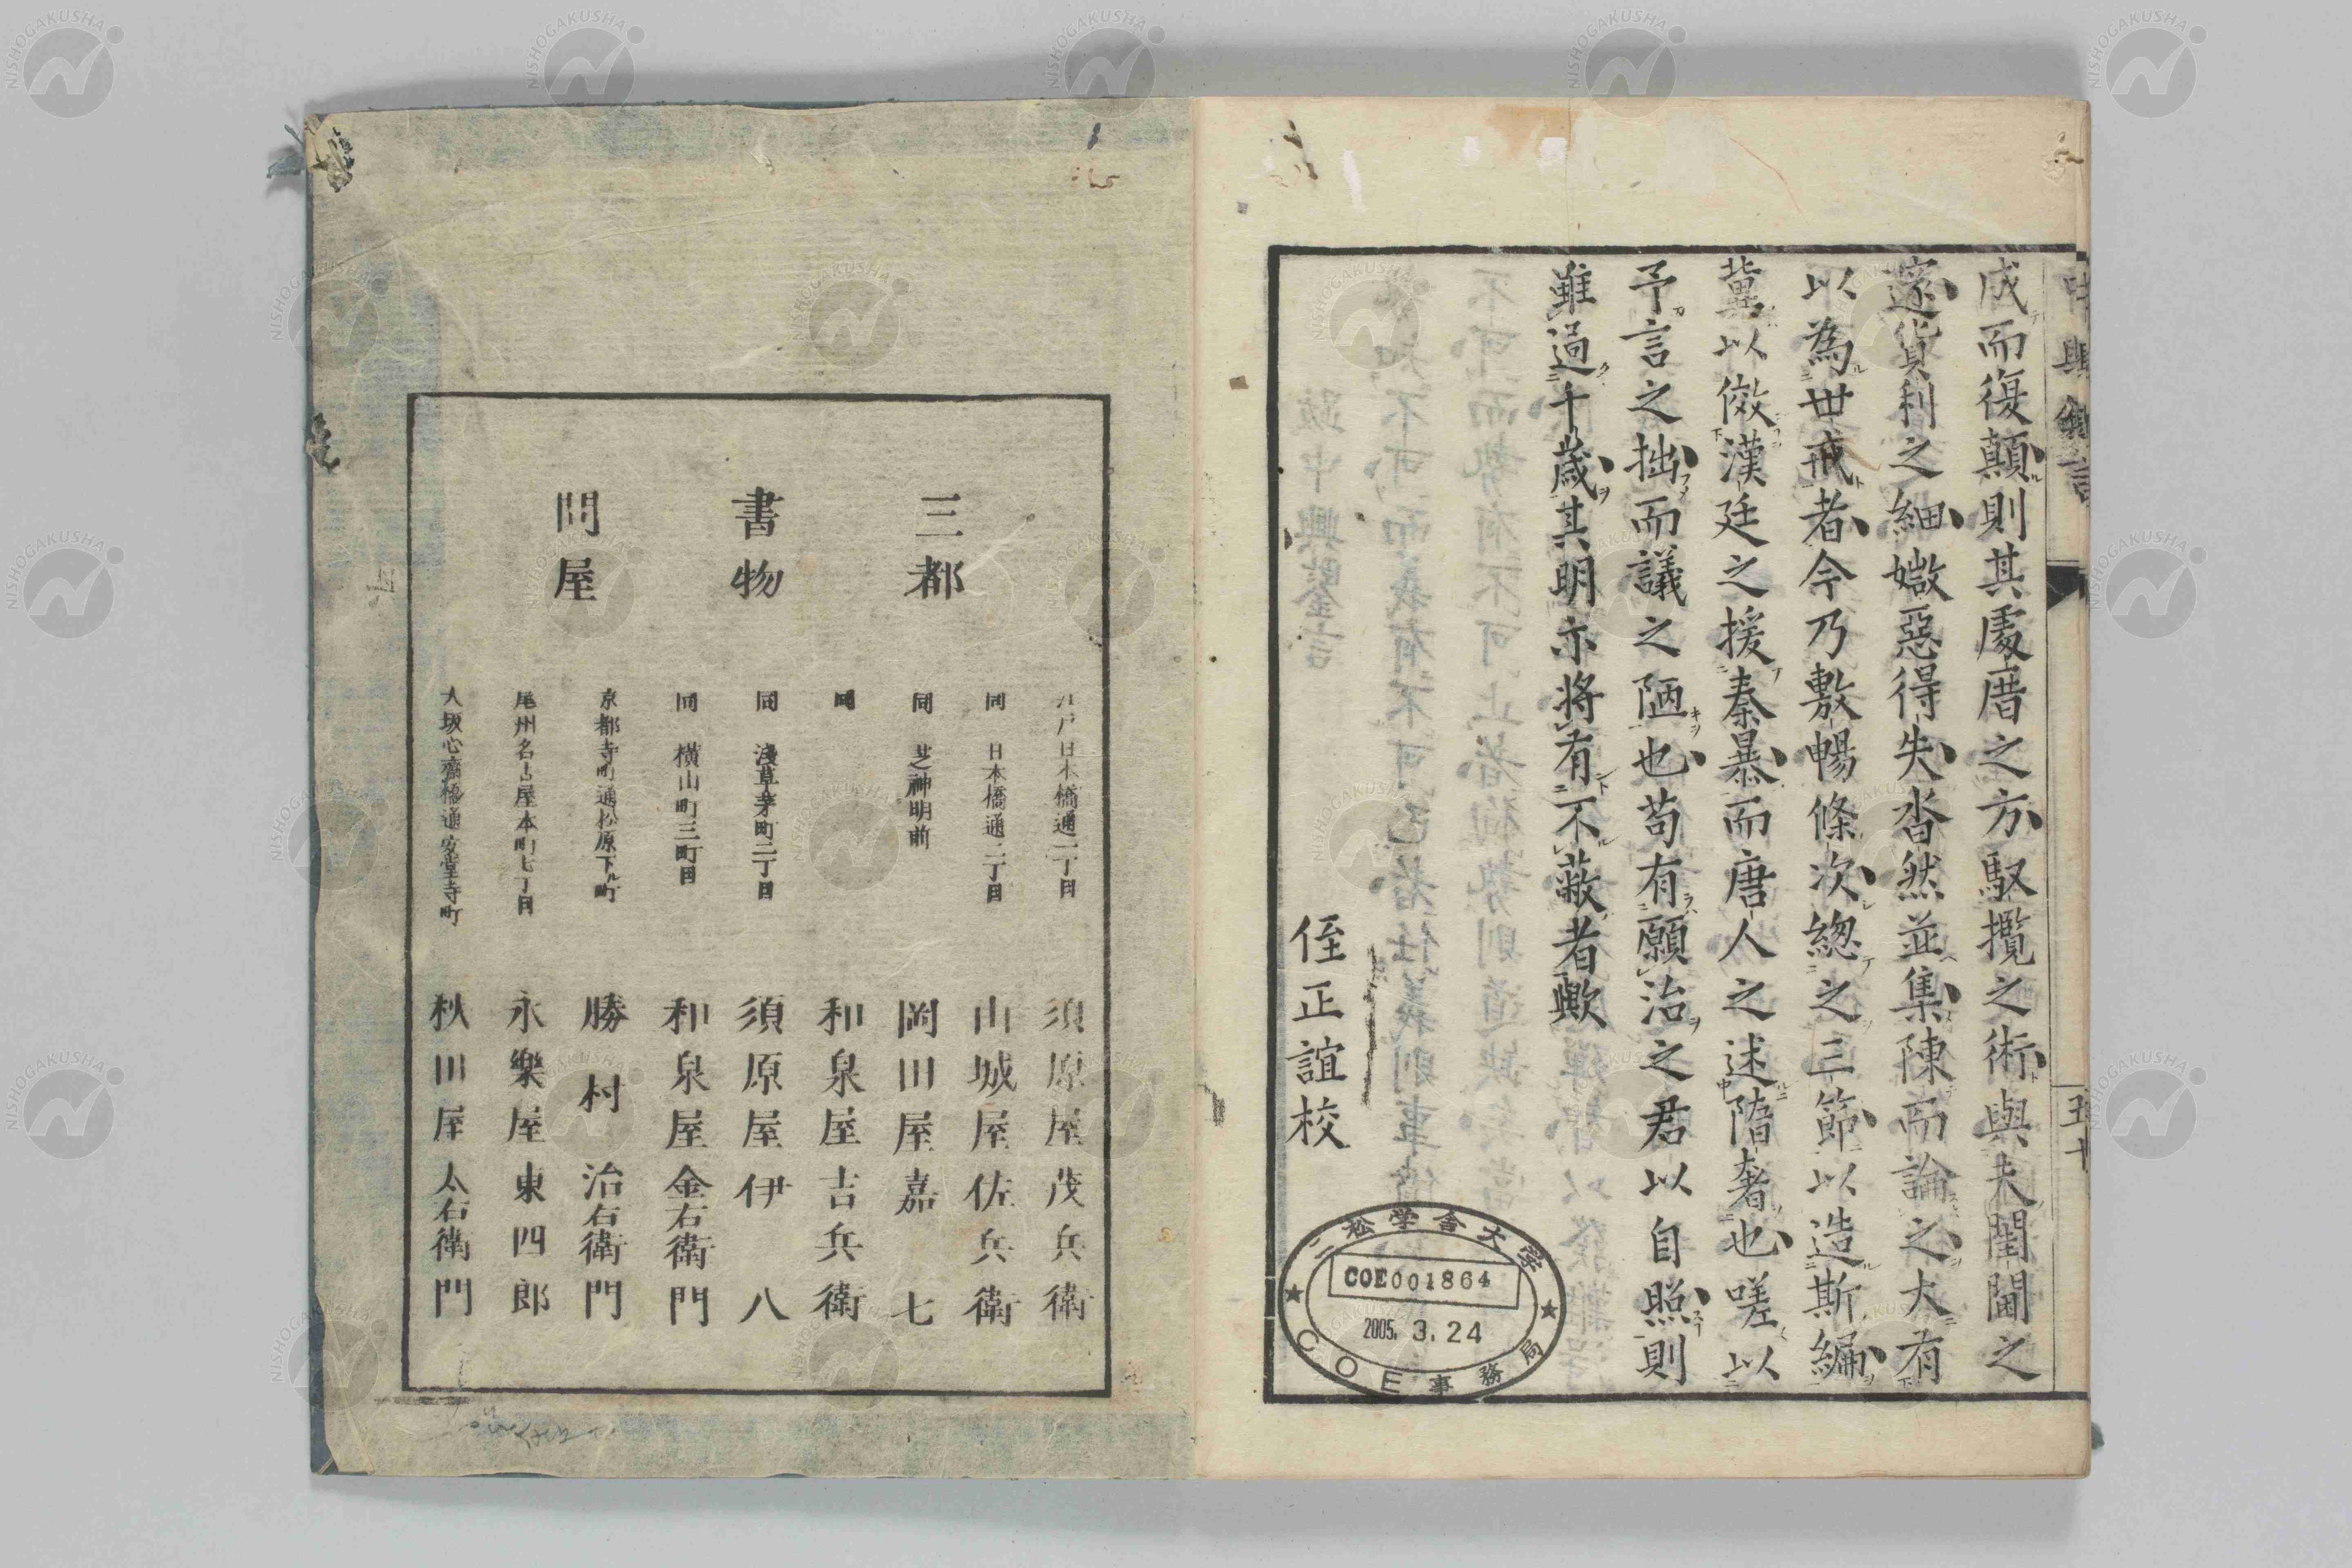 成而復顛則其處厝之方馭攬之術與夫閨閫之
邃貨利之細媺惡得失沓然並集陳而論之大有
以為世戒者今乃敷暢條次總之三節以造斯編
冀以倣漢廷之援秦暴而唐人之述隋奢也嗟以
予言之拙而議之陋也苟有願治之君以自照則
雖過十歲其明亦将有不蔽者歟
侄正誼校
二松学舎大学
COE001864
2005. 3. 24
COE事務局
三都
書物
問屋
江戸日本橋通一丁目 須原屋茂兵衛
同 日本橋通二丁目 山城屋佐兵衛
同 芝神明前 岡田屋嘉七
同 和泉屋吉兵衛
同 淺草茅町二丁目 須原屋伊八
同 横山町三町目 和泉屋金右衛門
京都寺町通松原下ル町 勝村治右衛門
尾州名古屋本町七丁目 永樂屋東四郎
大坂心齋橋通安堂寺町 秋田屋太右衛門
NISHOGAKUSHA